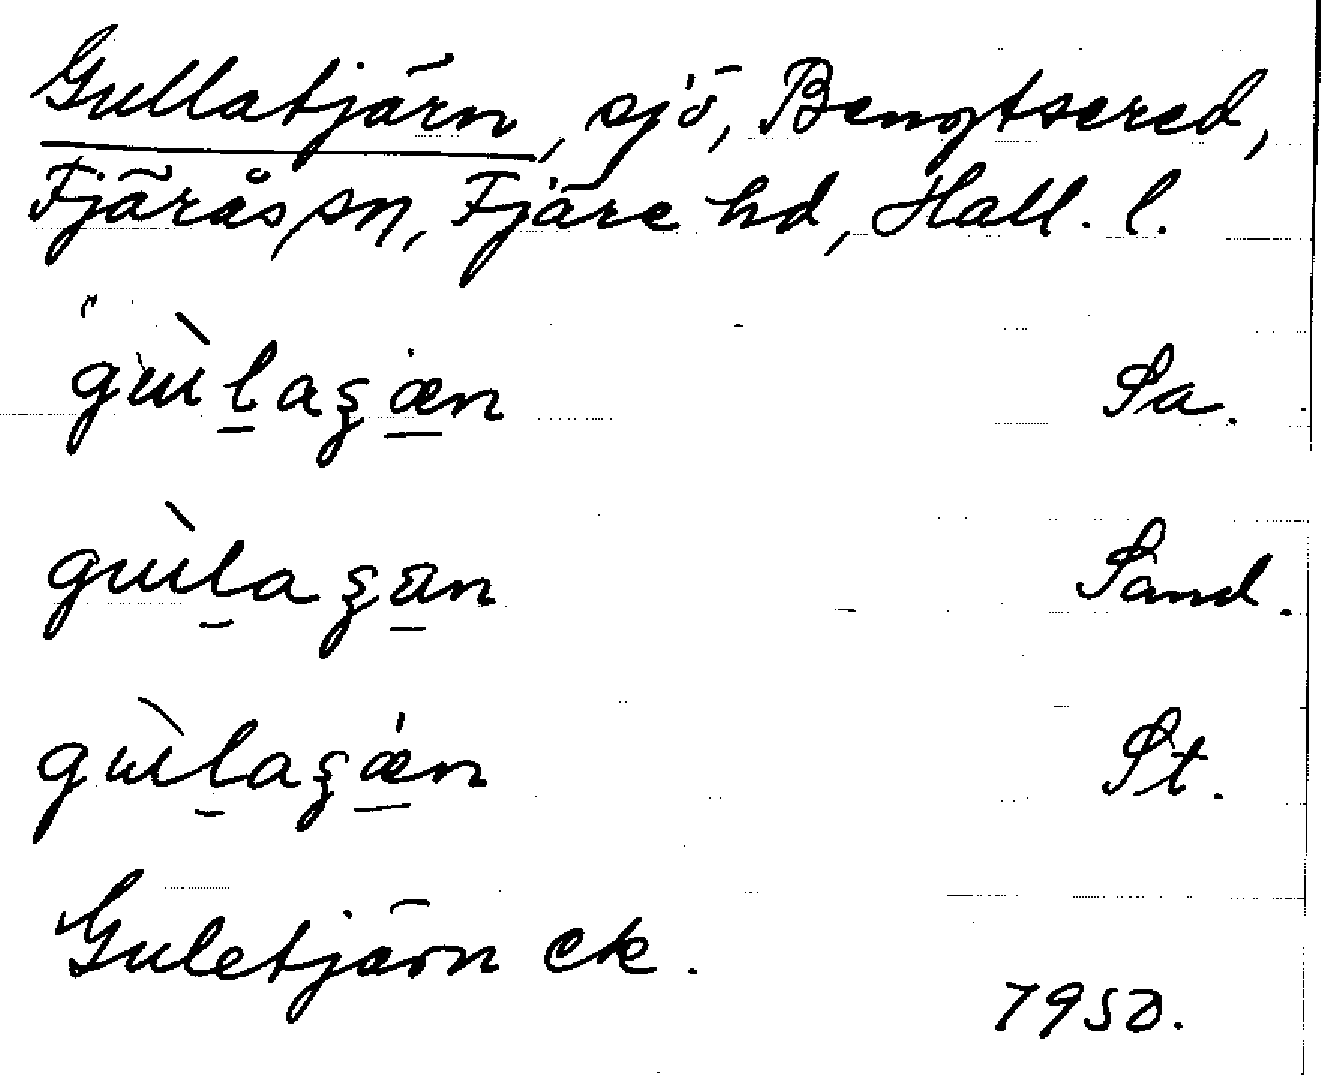 Gullatjärn, sjö, Bengtsered,
Fjärås sn, Fjäre hd, Hall. l.
gɯ̀l̠aʂæ̠n Sa.
gɯ̀l̠aʂä̠n Sand.
gɯ̀l̠aʂǽ̠n St.
Guletjärn ek.
1950.